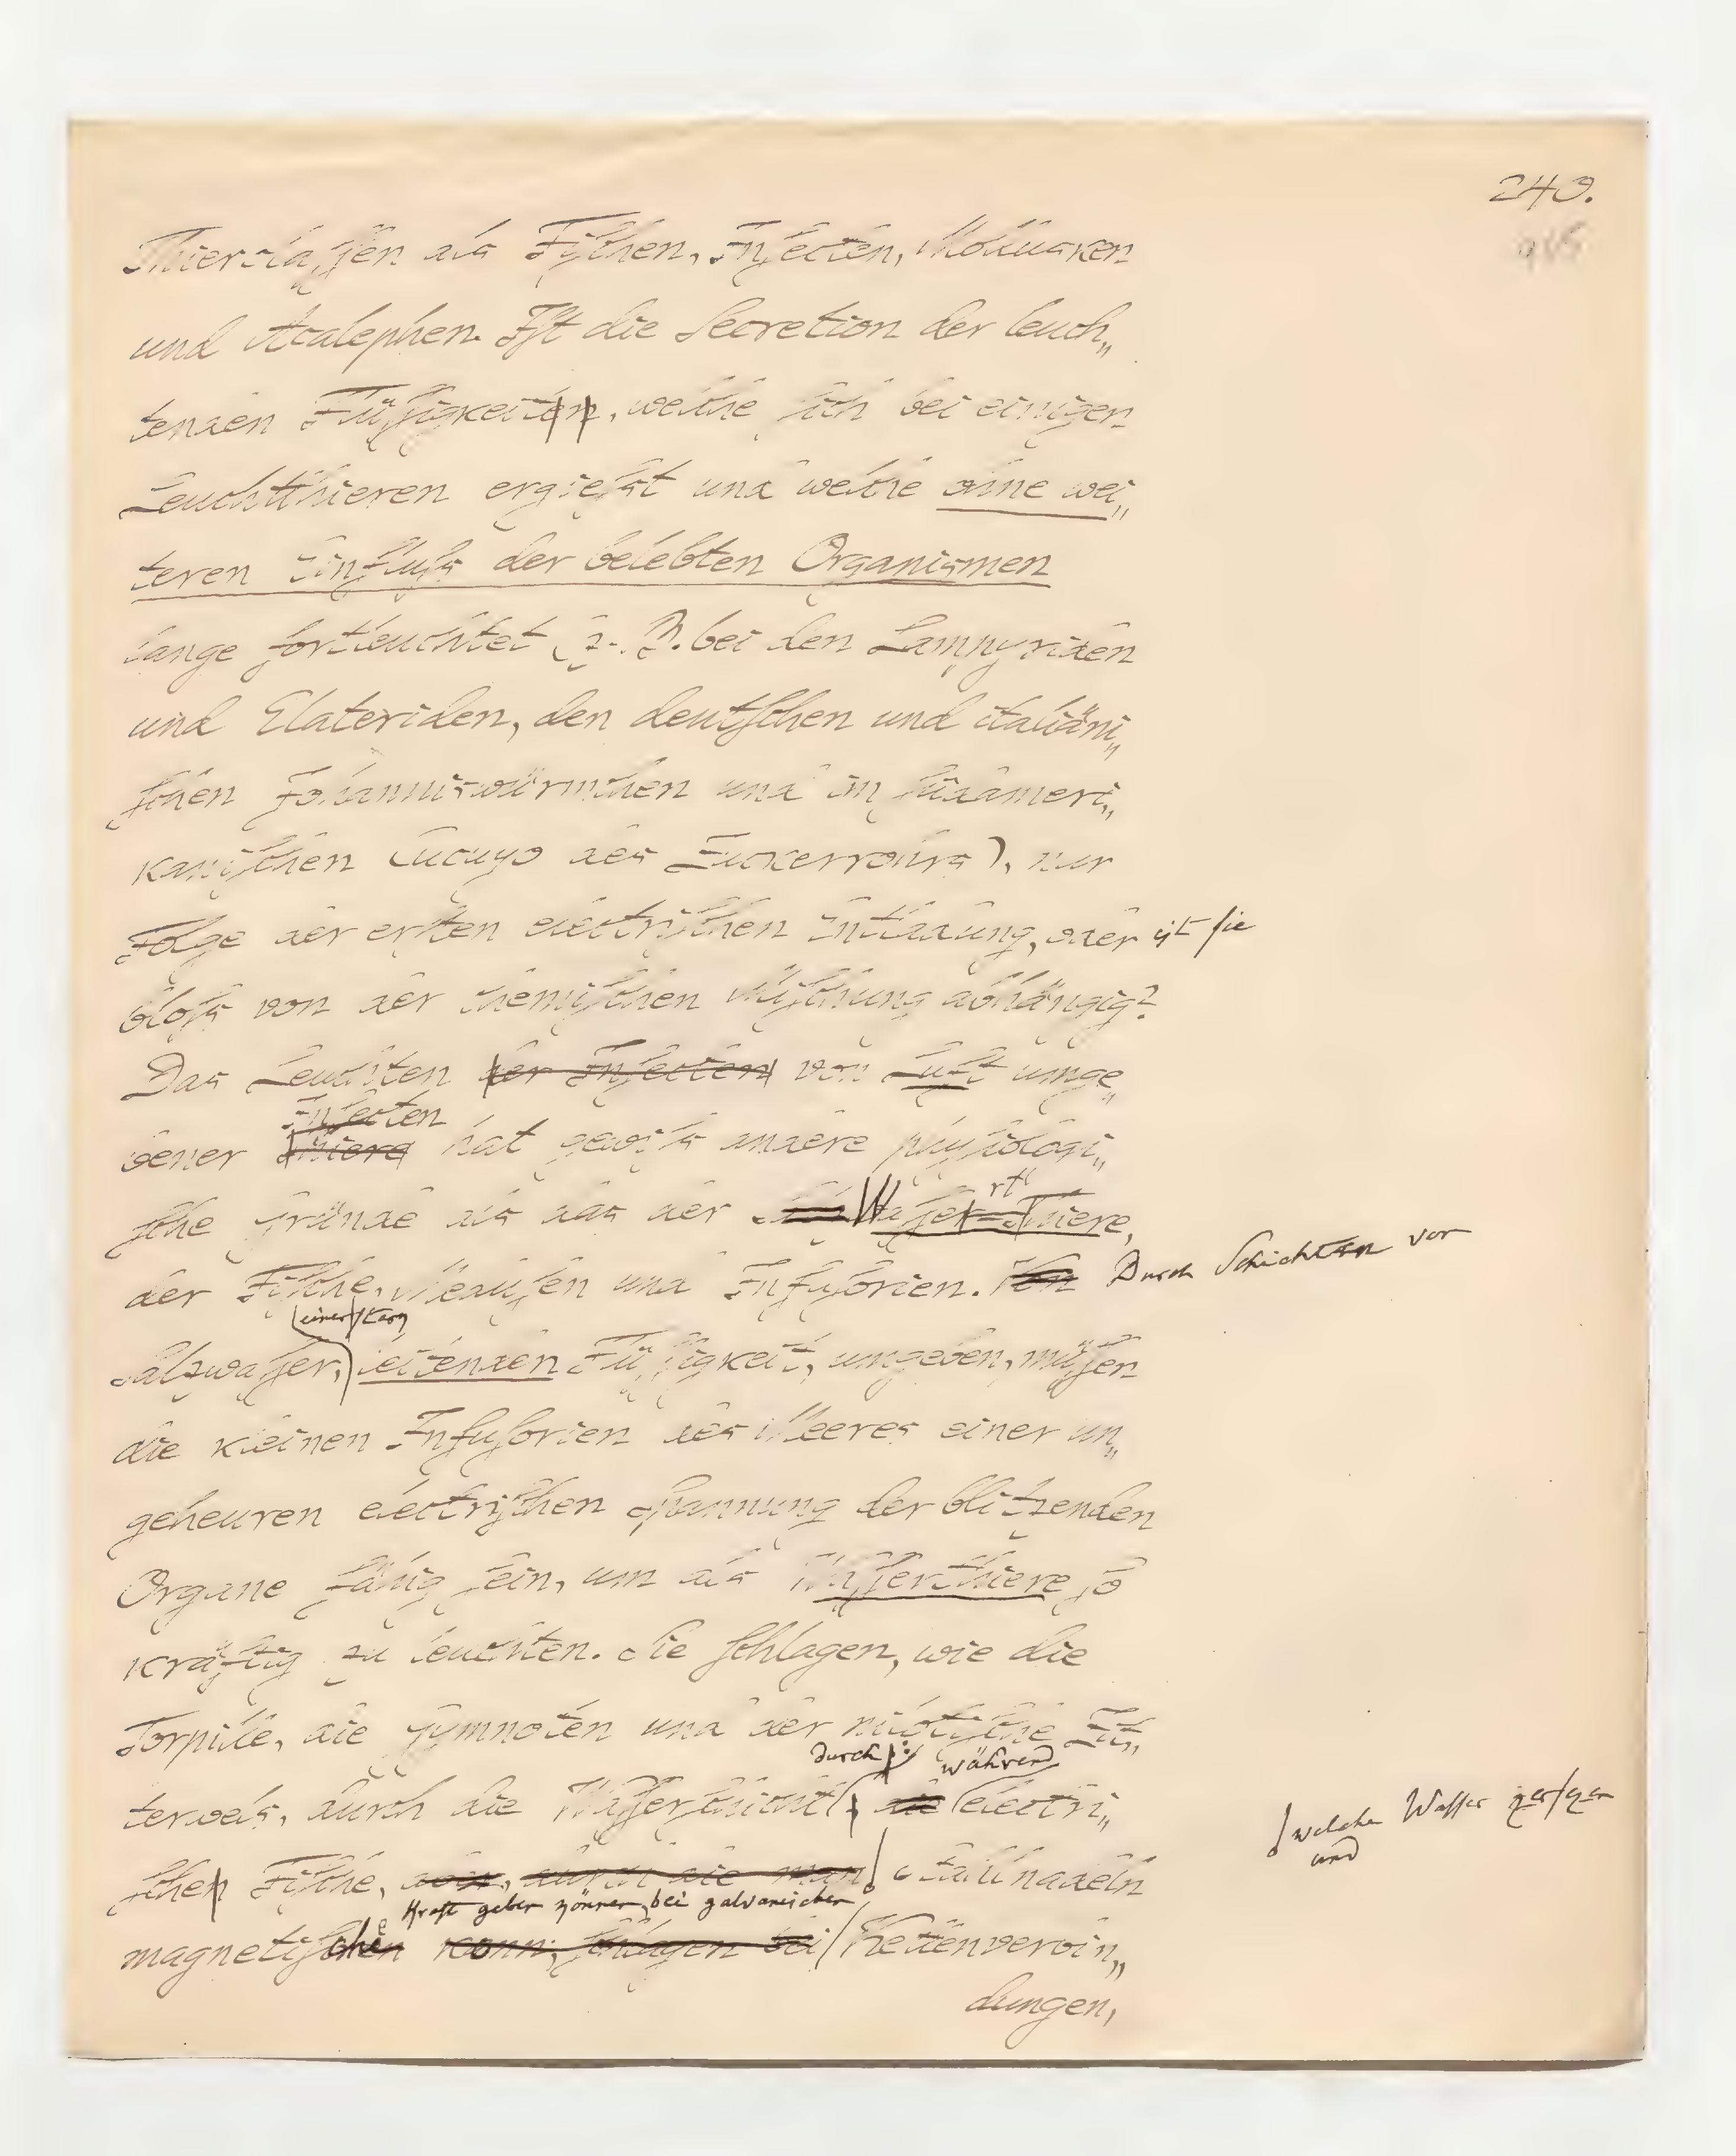 243.
Thierclaſſen als Fiſchen, Inſecten, Mollusken
und Acalephen. Iſt die Secretion der leuch„
tenden Flüſſigkeiten, welche ſich bei einigen
Leuchtthieren ergieſst und welche ohne wei„
teren Einfluſs der belebten Organismen
lange fortleuchtet (z. B. bei den Lampyriden
und Elateriden, den deutſchen und italiäni„
ſchen Johanniswürmchen und im ſüdameri„
kaniſchen Cucuyo des Zuckerrohrs), nur
Folge der erſten electriſchen Entladung, oder iſt ſie
bloſs von der chemiſchen Miſchung abhängig?
Das Leuchten der Inſecten von Luft umge„
Inſecten
bener Thiere hat gewiſs andere phyſiologi„
rt
ſche Gründe als das der Waſſer=Thiere,
der Fiſche, Meduſen und Infuſorien. Von Durch Schichten von
einer ſtark
Salzwaſſer, leitenden Flüſſigkeit, umgeben, müſſen
die kleinen Infuſorien des Meeres einer un„
geheuren electriſchen Spannung der blitzenden
Organe fähig ſein, um als Waſſerthiere ſo
kräftig zu leuchten. Sie ſchlagen, wie die
Torpille, die Gymnoten und der nilotiſche Zit„
durch während
terwels, durch die Waſſerſchicht, die electri„
ſchen Fiſche, aber, durch die man Stahlnadeln
welche Waſſer zerſetzen
und
Kraft geben können, bei galvaniſcher
magnetiſchen kann, ſchlagen bei Kettenverbin„
dungen,